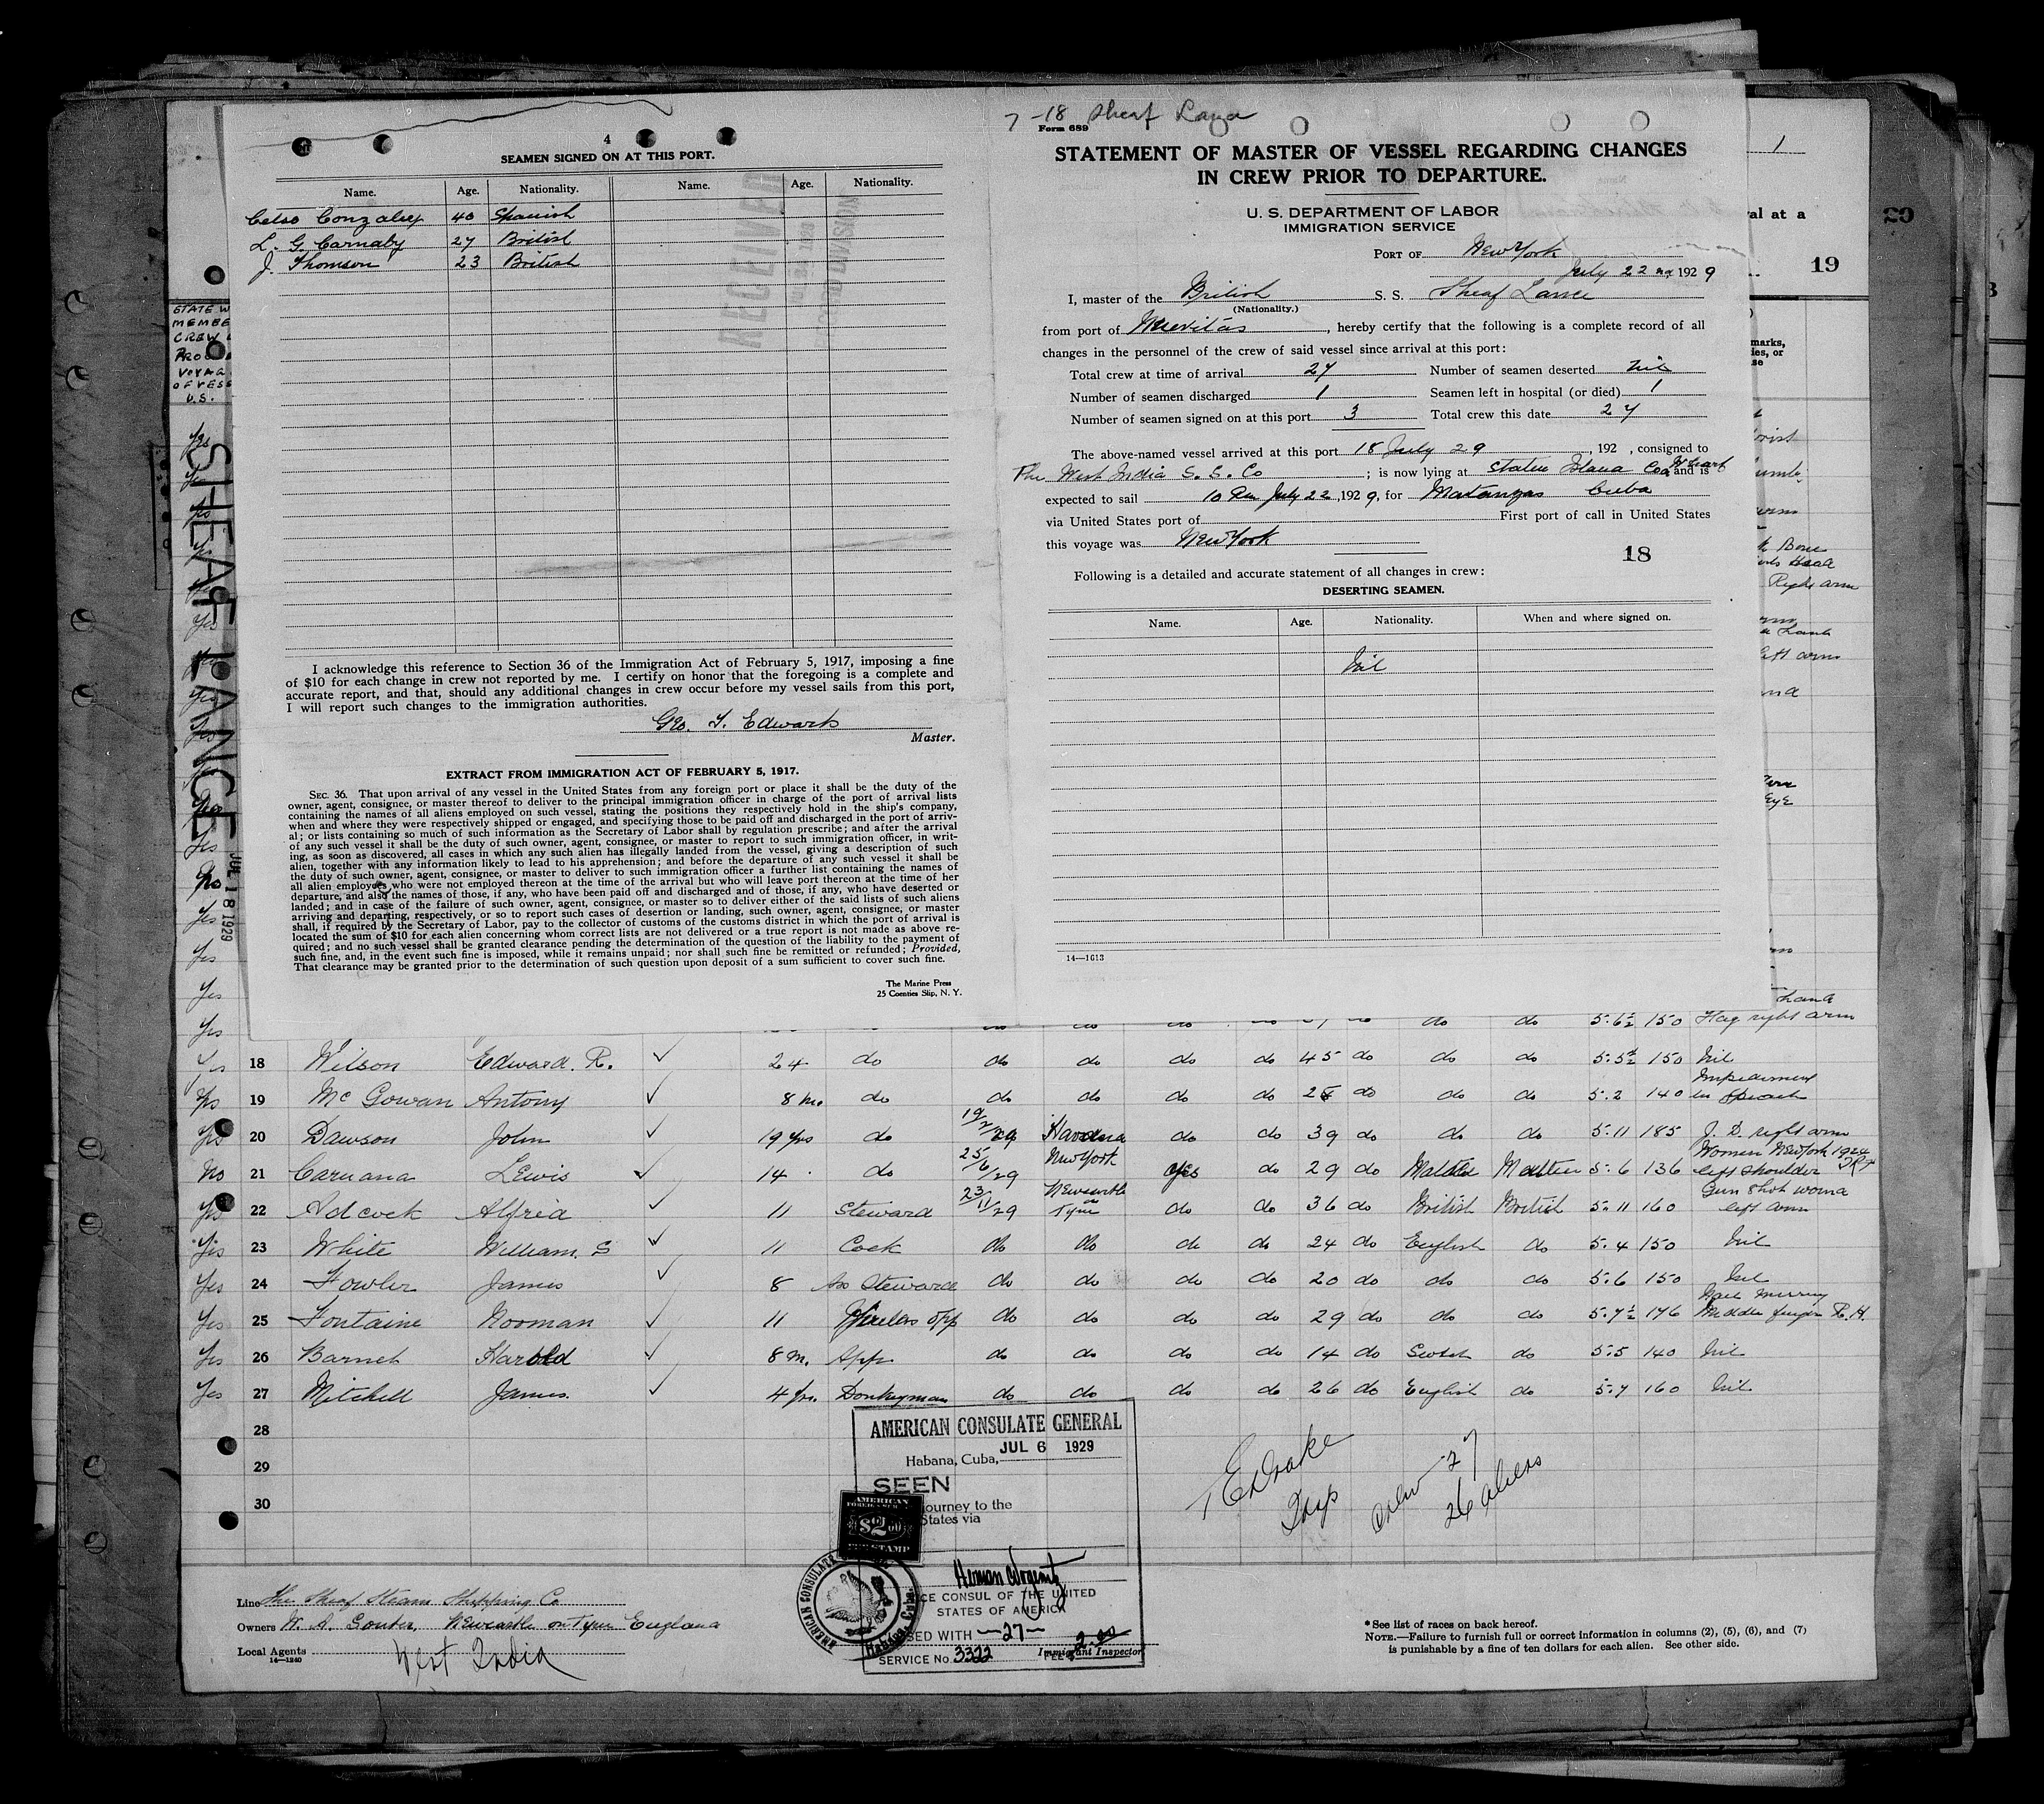 7-18 Sheaf Lance
4
SEAMEN SIGNED ON AT THIS PORT.
Name. Age. Nationality. Name. Age. Nationality.
Celso Gonzalez 40 Spanish
L. G. Carnaby 27 British
J. Thomson 23 British
RECEIVED
I acknowledge this reference to Section 36 of the Immigration Act of February 5, 1917, imposing a fine
of $10 for each change in crew not reported by me. I certify on honor that the foregoing is a complete and
accurate report, and that, should any additional changes in crew occur before my vessel sails from this port,
I will report such changes to the immigration authorities.
Geo. T. Edwards
Master.
EXTRACT FROM IMMIGRATION ACT OF FEBRUARY 5, 1917.
SEC. 36. That upon arrival of any vessel in the United States from any foreign port or place it shall be the duty of the
owner, agent, consignee, or master thereof to deliver to the principal immigration officer in charge of the port of arrival lists
containing the names of all aliens employed on such vessel, stating the positions they respectively hold in the ship's company,
when and where they were respectively shipped or engaged, and specifying those to be paid off and discharged in the port of arriv-
al; or lists containing so much of such information as the Secretary of Labor shall by regulation prescribe; and after the arrival
of any such vessel it shall be the duty of such owner, agent, consignee, or master to report to such immigration officer, in writ-
ing, as soon as discovered, all cases in which any such alien has illegally landed from the vessel, giving a description of such
alien, together with any information likely to lead to his apprehension; and before the departure of any such vessel it shall be
the duty of such owner, agent, consignee, or master to deliver to such immigration officer a further list containing the names of
all alien employes who were not employed thereon at the time of the arrival but who will leave port thereon at the time of her
departure, and also the names of those, if any, who have been paid off and discharged and of those, if any, who have deserted or
landed; and in case of the failure of such owner, agent, consignee, or master so to deliver either of the said lists of such aliens
arriving and departing, respectively, or so to report such cases of desertion or landing, such owner, agent, consignee, or master
shall, if required by the Secretary of Labor, pay to the collector of customs of the customs district in which the port of arrival is
located the sum of $10 for each alien concerning whom correct lists are not delivered or a true report is not made as above re-
quired; and no such vessel shall be granted clearance pending the determination of the question of the liability to the payment of
such fine, and, in the event such fine is imposed, while it remains unpaid; nor shall such fine be remitted or refunded; Provided,
That clearance may be granted prior to the determination of such question upon deposit of a sum sufficient to cover such fine.
The Marine Press
25 Coenties Slip, N. Y.
Form 689
STATEMENT OF MASTER OF VESSEL REGARDING CHANGES
IN CREW PRIOR TO DEPARTURE.
U. S. DEPARTMENT OF LABOR
IMMIGRATION SERVICE
PORT OF New York
July 22nd, 1929
I, master of the British S. S. Sheaf Lance
(Nationality.)
from port of Nuevitas, hereby certify that the following is a complete record of all
changes in the personnel of the crew of said vessel since arrival at this port:
Total crew at time of arrival 27 Number of seamen deserted Nil
Number of seamen discharged 1 Seamen left in hospital (or died) 1
Number of seamen signed on at this port 3 Total crew this date 27
The above-named vessel arrived at this port 18 July 29, 192 , consigned to
The West India S. S. Co; is now lying at Staten Island Coal Wharf and is
expected to sail 10 am July 22, 1929, for Matanzas Cuba
via United States port of First port of call in United States
this voyage was New York
18
Following is a detailed and accurate statement of all changes in crew:
DESERTING SEAMEN.
Name. Age. Nationality. When and where signed on.
Nil
14—1613
1
val at a
20
19
SHEAF LANCE
JUL 18 1929
5.6½ 150 Flag right arm
Yes 18 Wilson Edward. R. 24 do do do do do 45 do do do 5.5½ 150 Nil
Yes 19 McGowan Antony 8 m. do do do do do do do do 5.2 140 Impediment in Speach
Yes 20 Dawson John 19 yrs do 19/2/29 Havana do do 39 do do do 5.11 185 J. D. right arm
No 21 Caruana Lewis 14 do 25/6/29 New York Yes do 29 do Maltese Maltese 5.6 136 Women New York 1924 left shoulder
Yes 22 Adcock Alfred 11 Steward 23/11/29 Newcastle on Tyne do do 36 do British British 5.11 160 Gun Shot wound left arm
Yes 23 White William. S 11 Cook do do do do 24 do English do 5.4 150 Nil
Yes 24 Fowler James 8 As Steward do do do do 20 do do do 5.6 150 Nil
Yes 25 Fontaine Norman 11 Wireless opp do do do do 29 do do do 5.7½ 176 Middle finger R. H.
Yes 26 Barnet Harold 8 m. App. do do do do 14 do Scotch do 5.5 140 Nil
Yes 27 Mitchell James. 4 yrs. Donkeyman do do do do 26 do English do 5.7 160 Nil
28
29
30
AMERICAN CONSULATE GENERAL
Habana, Cuba, JUL 6 1929
SEEN
journey to the
States via
AMERICAN
$2.00
FEE STAMP
VICE CONSUL OF THE UNITED
STATES OF AMERICA
USED WITH —27—
SERVICE No. 3322 FEE 2.00
Immigrant Inspector
AMERICAN CONSULATE
Habana, Cuba.
E Drake
Insp
Crew 27
26 aliens
Line The Sheaf Steam Shipping Co
Owners W. A. Souter, Newcastle on Tyne England
Local Agents West India
14—1240
*See list of races on back hereof.
NOTE.—Failure to furnish full or correct information in columns (2), (5), (6), and (7)
is punishable by a fine of ten dollars for each alien. See other side.